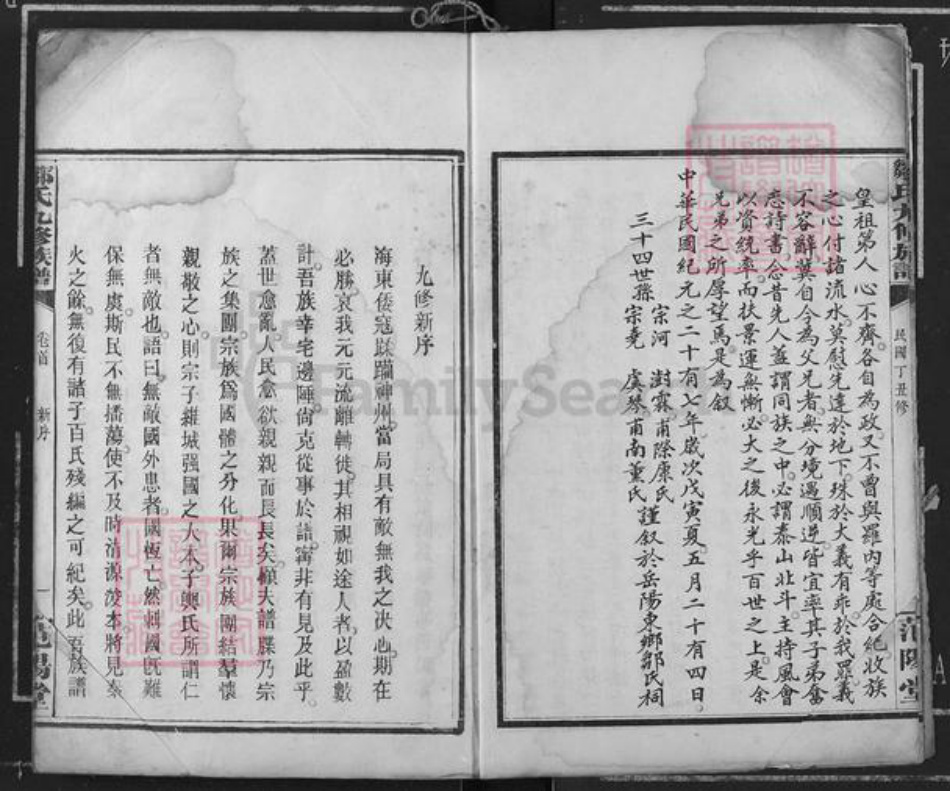 鄒氏九修族譜
民國丁丑修
范陽堂
皇祖第人心不齊各自為政又不曾與羅內等處合紀收族
之心付諸流水莫慰先達於地下殊於大義有乖於我罪義
不容辭冀自今為父兄者無分境遇順逆皆宜率其子弟奮
悉詩書念昔先人蓋謂同族之中必謂泰山北斗主持風會
以資統率而扶景運無慚必大之後永光乎百世之上是余
兄弟之所厚望焉是為叙
中華民國紀元之二十有七年歲次戊寅夏五月二十有四日
三十四世孫宗河澍霖甫際康氏
宗堯虞琴甫南薰氏謹叙於岳陽東鄉鄒氏祠
九修新序
海東倭寇蹂躪神州當局具有敵無我之決心期在
必勝哀我元元流離轉徙其相視如途人者以盈數
計吾族幸宅邊陲尚克從事於譜寗非有見及此乎
蓋世愈亂人民愈欲親親而長長矣顧夫譜牒乃宗
族之集團宗族為國體之分化果爾宗族團結羣懷
親敬之心則宗子維城强國之大本子輿氏所謂仁
者無敵也語曰無敵國外患者國恆亡然剌國旣難
保無虞斯民不無播蕩使不及時清源浚本將見秦
火之餘無復有諸子百氏殘編之可紀矣此吾族譜
鄒氏九修族譜
卷首
新序
一
范陽堂
FamilySearch